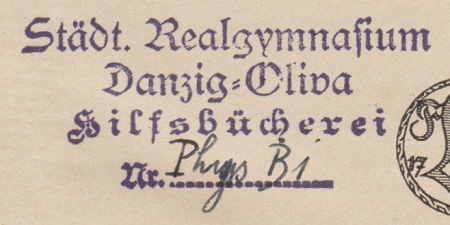 Städt. Realgymnasium
Danzig-Oliva
Hilfsbücherei
Nr. Phys B1
17